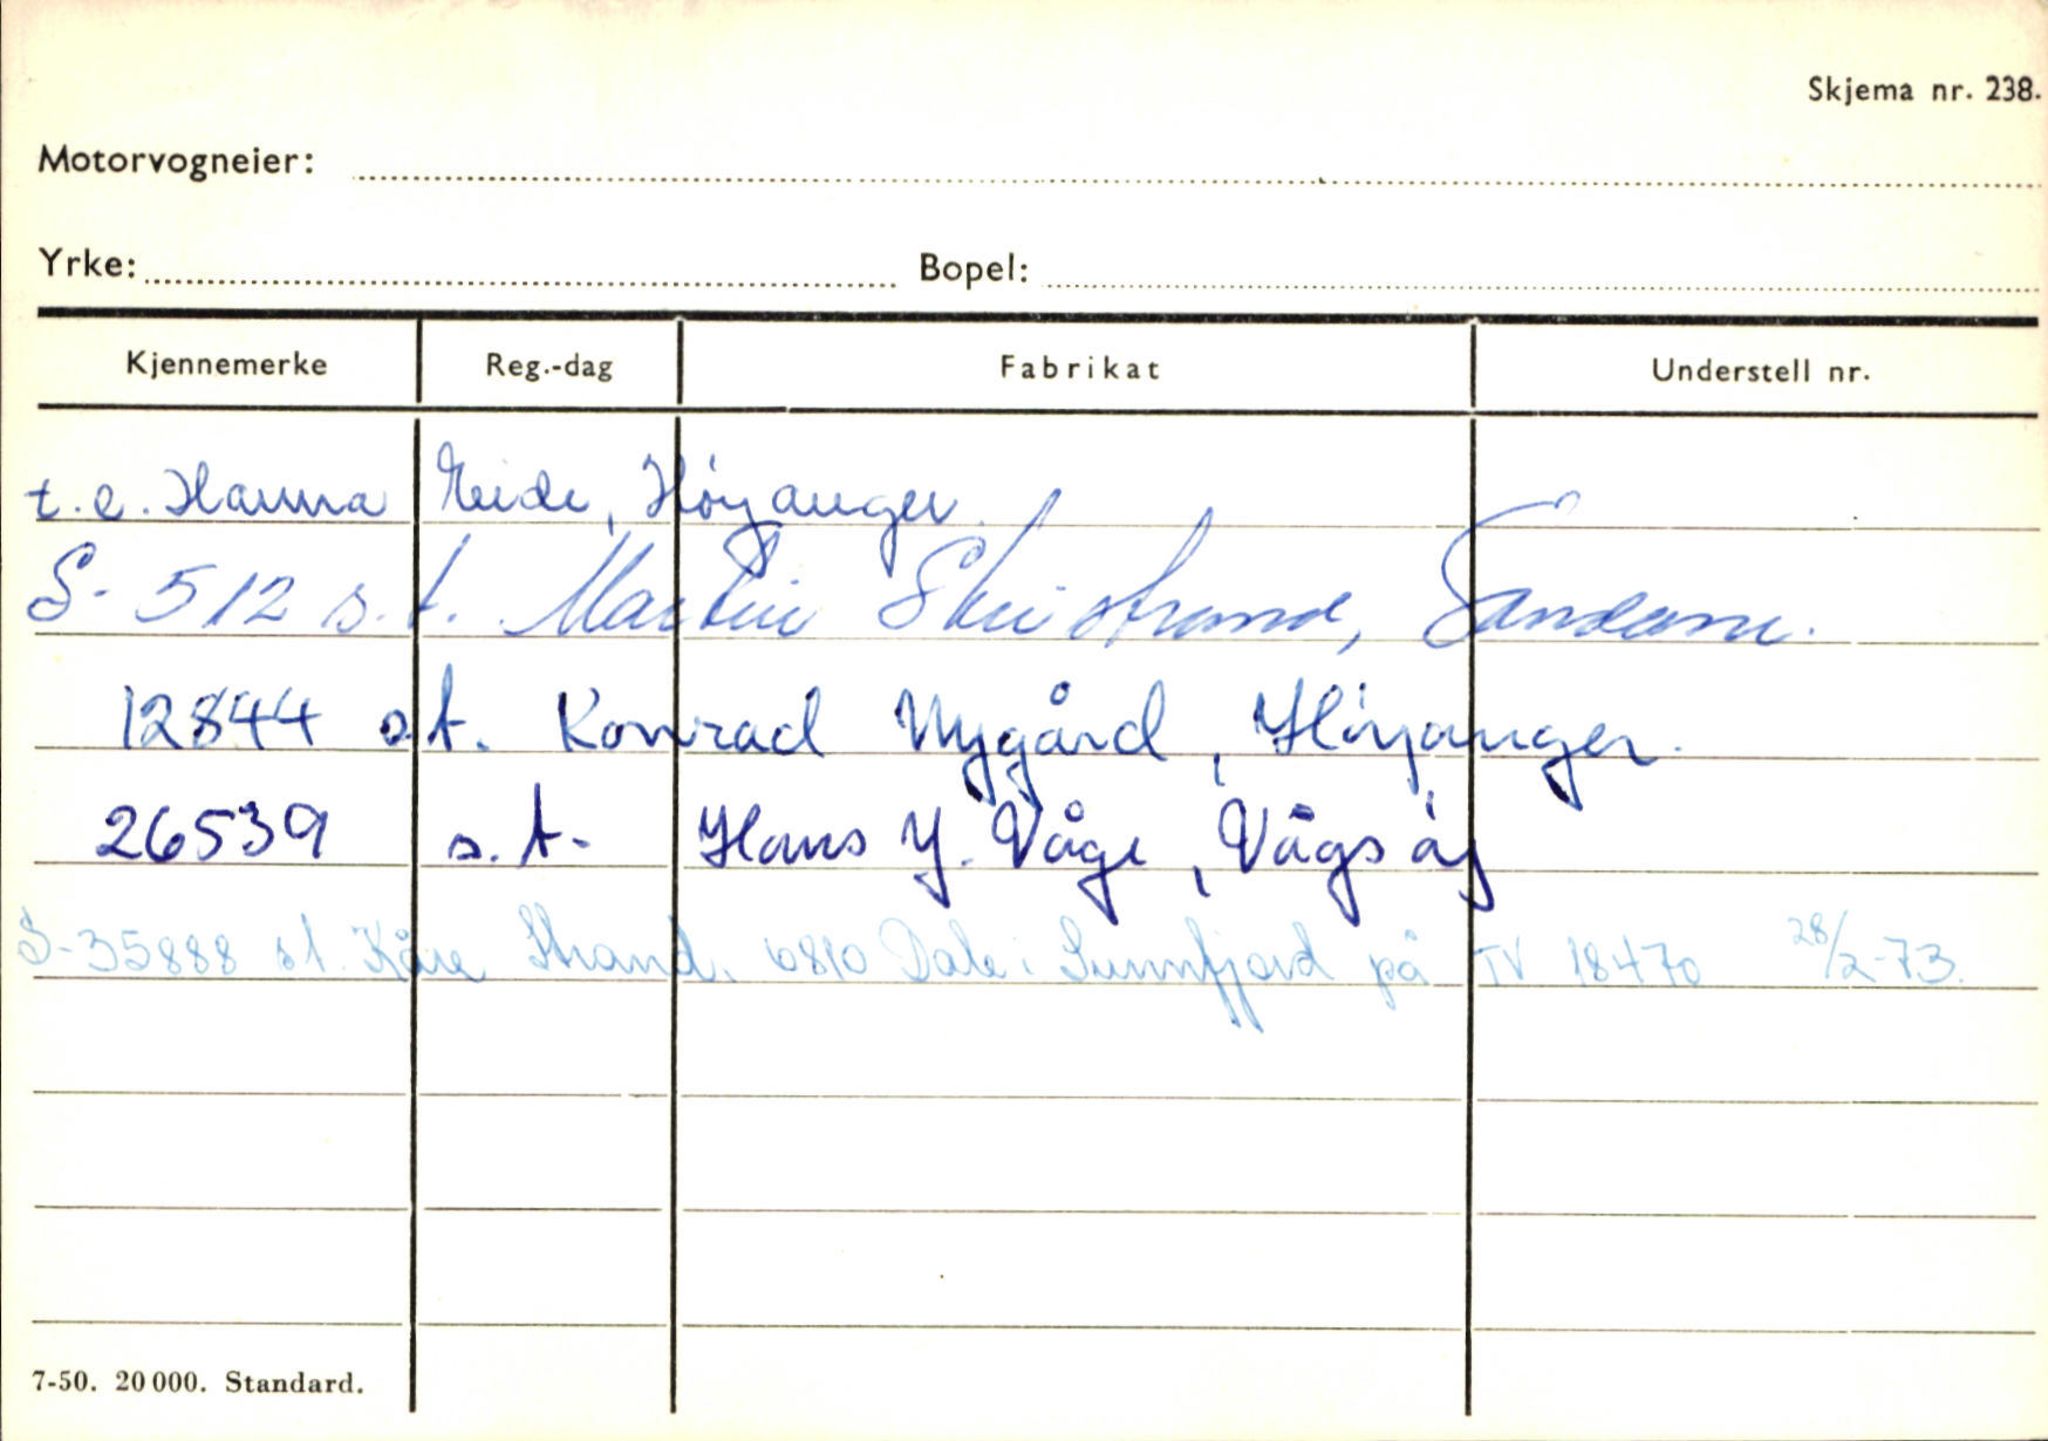 Skjema nr. 238.
Motorvogneier:
Yrke: Bopel:
Kjennemerke Reg.-dag Fabrikat Understell nr.
t.e. Hanna Eide, Höyanger.
S-512 s.t. Martin Skeistrand, Sandane.
12844 s.t. Konrad Nygård, Höyanger.
26539 s.t. Hans Y. Våge, Vågsöy
S-35888 s.t. Kåre Strand, 6810 Dale i Sunnfjord på TV 18470 28/2-73.
7-50. 20 000. Standard.